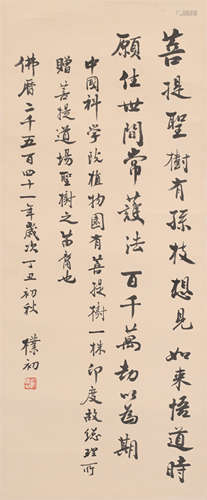 菩提聖樹有孫枝想見如來悟道時
願住世間常護法百千萬劫以為期
中國科学院植物園有菩提樹一株印度故総理所
贈菩提道場聖樹之苗裔也
佛曆二千五百四十一年歲次丁丑初秋
樸初